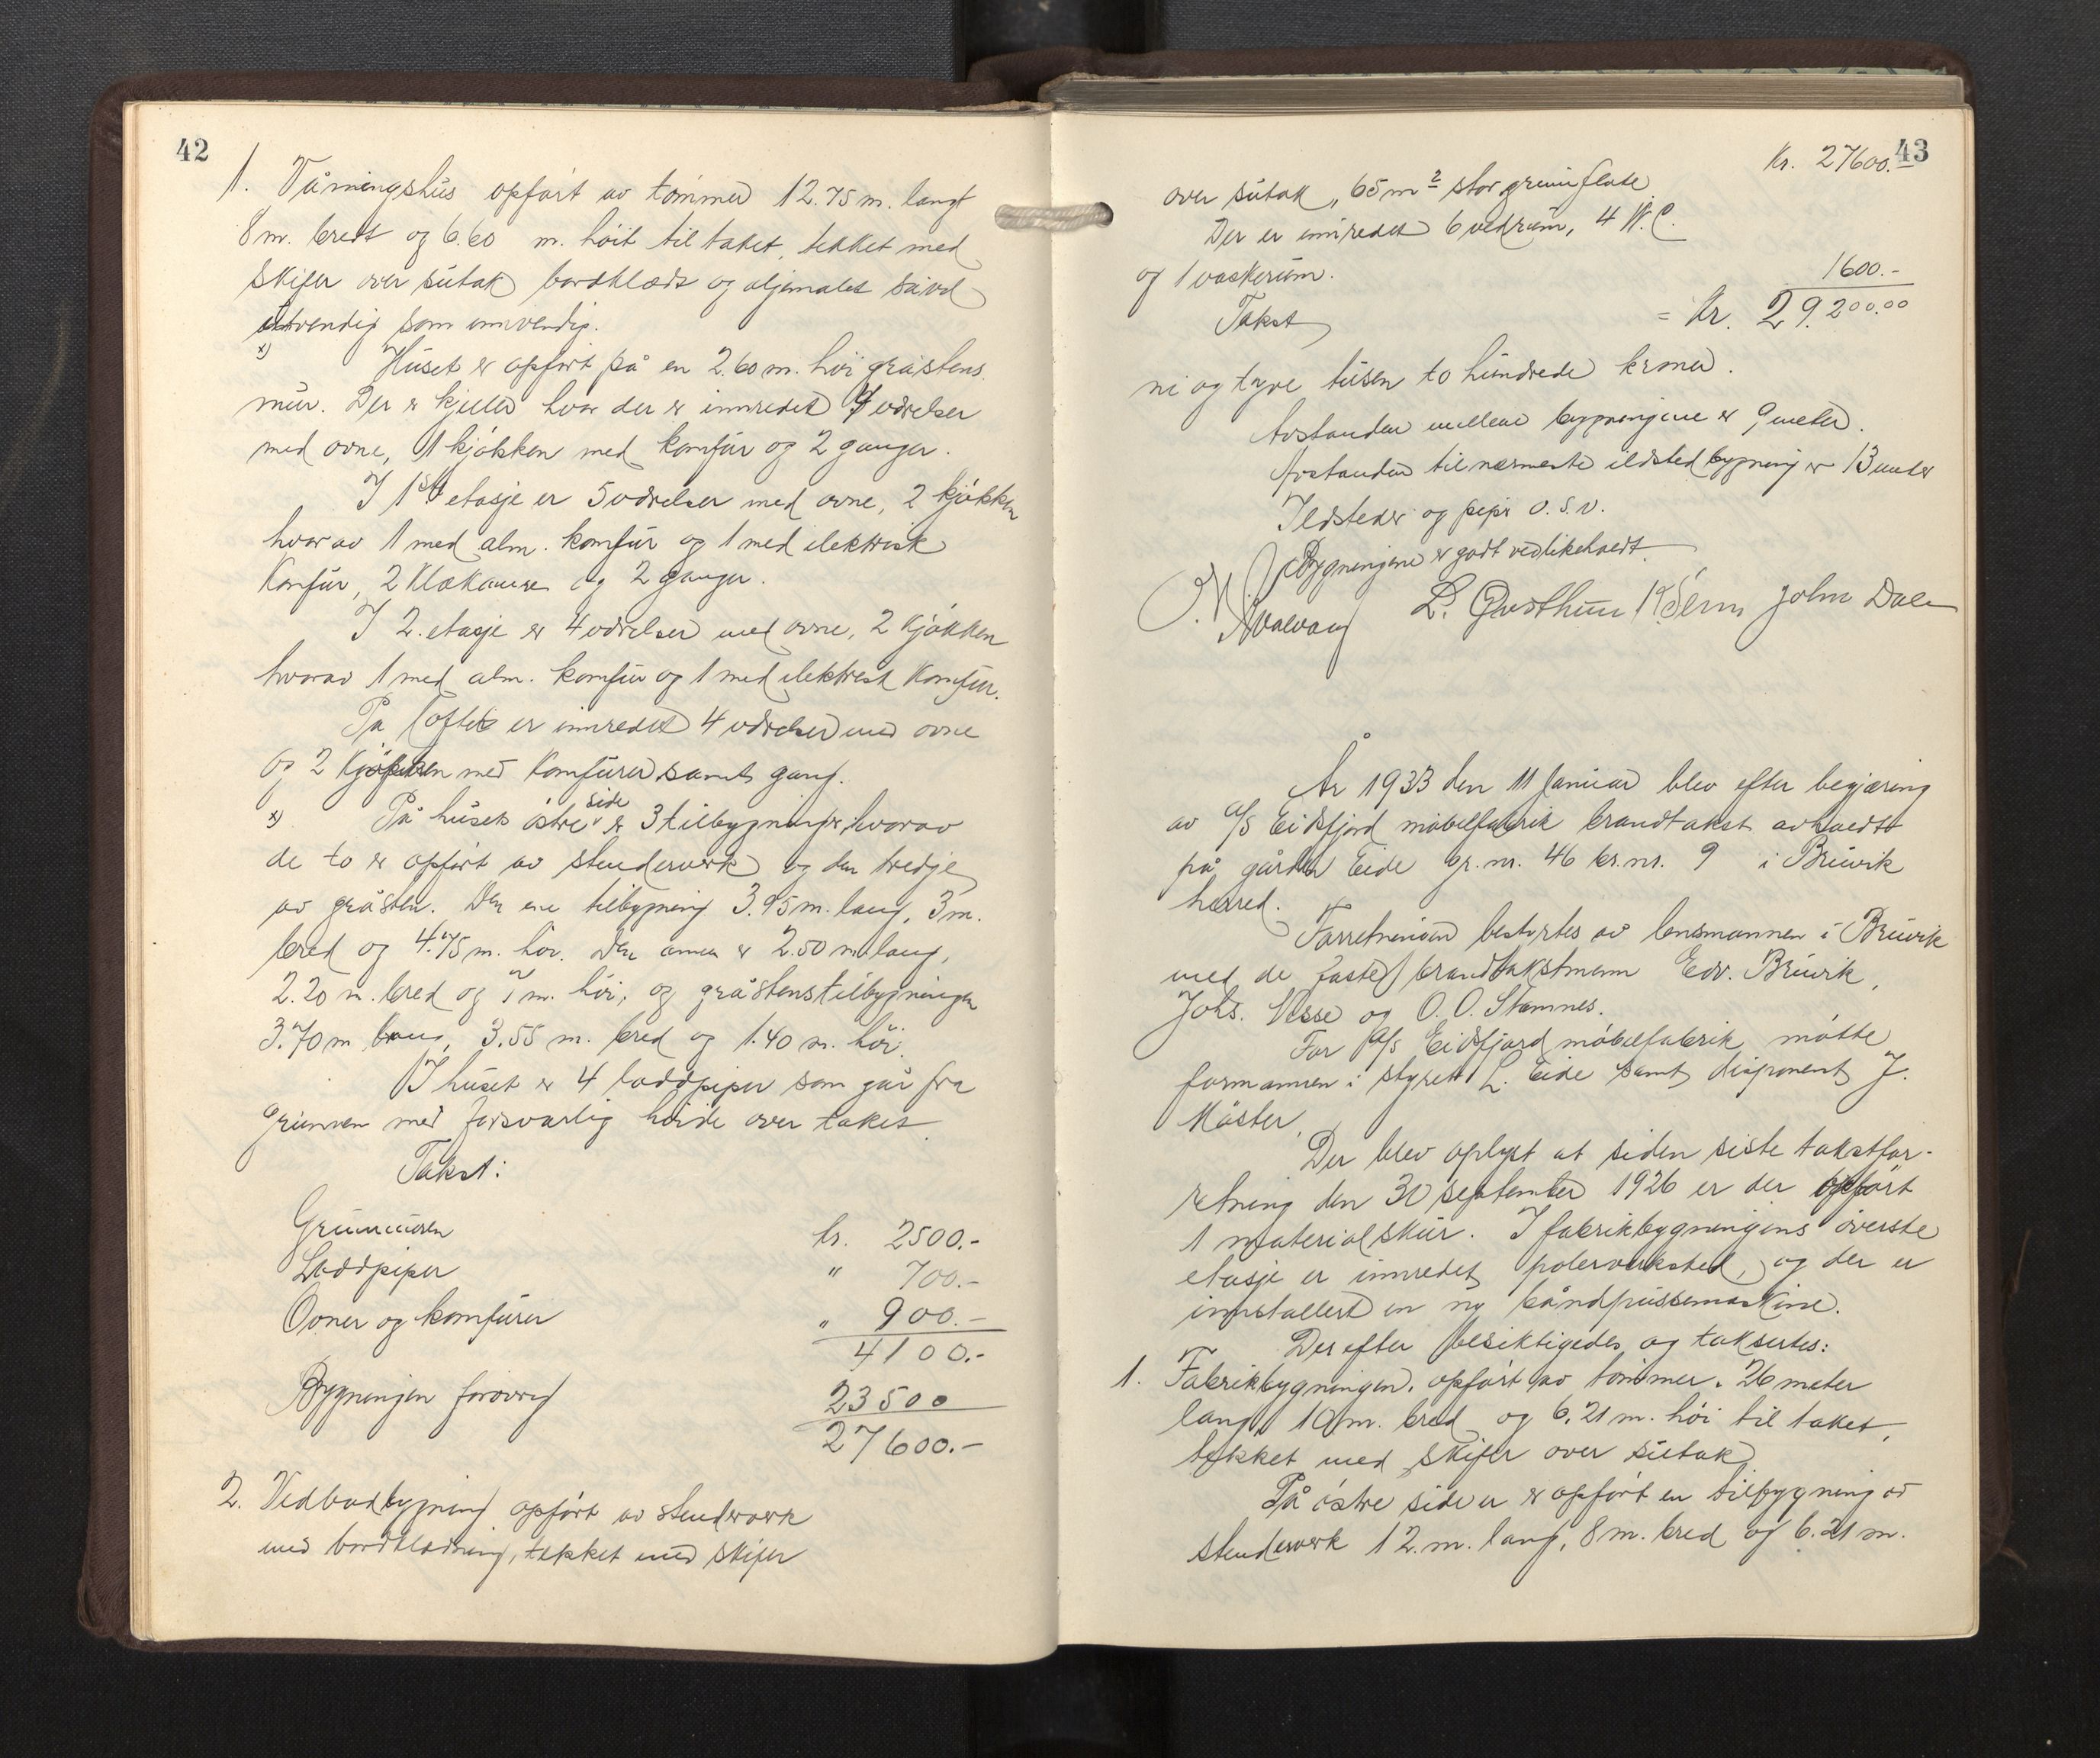 42
1. Våningshus opført av tømmer 12.75 m. langt
8 m. bredt og 6.60 m. høit til taket, tekket med
skifer over sutak bordklædt og oljemalet såvel
utvendig som innvendig.
x) Huset er opført på en 2.60 m. høi gråstens
mur. Der er kjeller hvor der er innredet 4 værelser
med ovne, 1 kjøkken med komfur og 2 ganger.
I 1ste etasje er 5 værelser med ovne, 2 kjøkken
hvorav 1 med alm. komfur og 1 med elektrisk
Komfur, 2 Klækamre og 2 ganger.
I 2. etasje er 4 værelser med ovne, 2 kjøkken
hvorav 1 med alm. komfur og 1 med elektrisk Komfur.
På loftet er innredet 4 værelser med ovne
og 2 Kjøkken med Komfurer samt gang.
x) På husets østre side er 3 tilbygninger, hvorav
de to er opført av stenderverk og den tredje
av gråsten. Den ene tilbygning 3.95 m. lang, 3 m.
bred og 4.75 m. høi. Den annen er 2.50 m. lang,
2.20 m. bred og 7 m. høi, og gråstenstilbygningen
3.70 m lang, 3.55 m. bred og 1.40 m. høi.
I huset er 4 loddpiper som går fra
Grunnen med forsvarlig høide over taket.
Takst:
Grunnmuren kr. 2500.-
Loddpiper " 700.-
Ovner og komfurer " 900.-
4100.-
Bygningen forøvrig 23500
27600.-
2. Vedbodbygning opført av stenderverk
med bordklædning, tekket med skifer
43
Kr. 27600.-
over sutak, 65 m² stor grunnflate.
Der er innredet 6 vedrum, 4 W.C.
og 1 vaskerum. 1600.-
Takst = Kr. 29.200.00
ni og tyve tusen to hundrede kroner.
Avstanden mellem bygningene er 9 meter.
Avstanden til nærmeste ildsted bygning er 13 meter
Ildsteder og piper o.s.v.
Bygningene er godt vedlikeholdt.
L. John Dale
År 1933 den 11 Januar blev efter begjæring
av A/S Eidsfjord møbelfabrik brandtakst avholdt
på gården Eide gr.nr. 46 br.nr. 9 i Bruvik
herred.
Forretningen bestyrtes av lensmannen i Bruvik
med de faste brandtakstmenn Edv. Bruvik,
Johs. Hesse og O. O. Stamnes.
For A/S Eidsfjord møbelfabrik møtte
formannen i styret L. Eide samt disponent J.
Møster.
Der blev oplyst at siden siste takstfor-
retning den 30 september 1926 er der opført
1 materialskur. I fabrikbygningens øverste
etasje er innredet polerverksted, og der er
innstallert en ny båndpussemaskine.
Derefter besiktigedes og taksertes:
1. Fabrikbygningen, opført av tømmer. 26 meter
lang, 10 m. bred og 6,21 m. høi til taket,
tekket med skifer over sutak.
På østre side er er opført en tilbygning av
stenderverk 12. m. lang, 8 m. bred og 6.21 m.